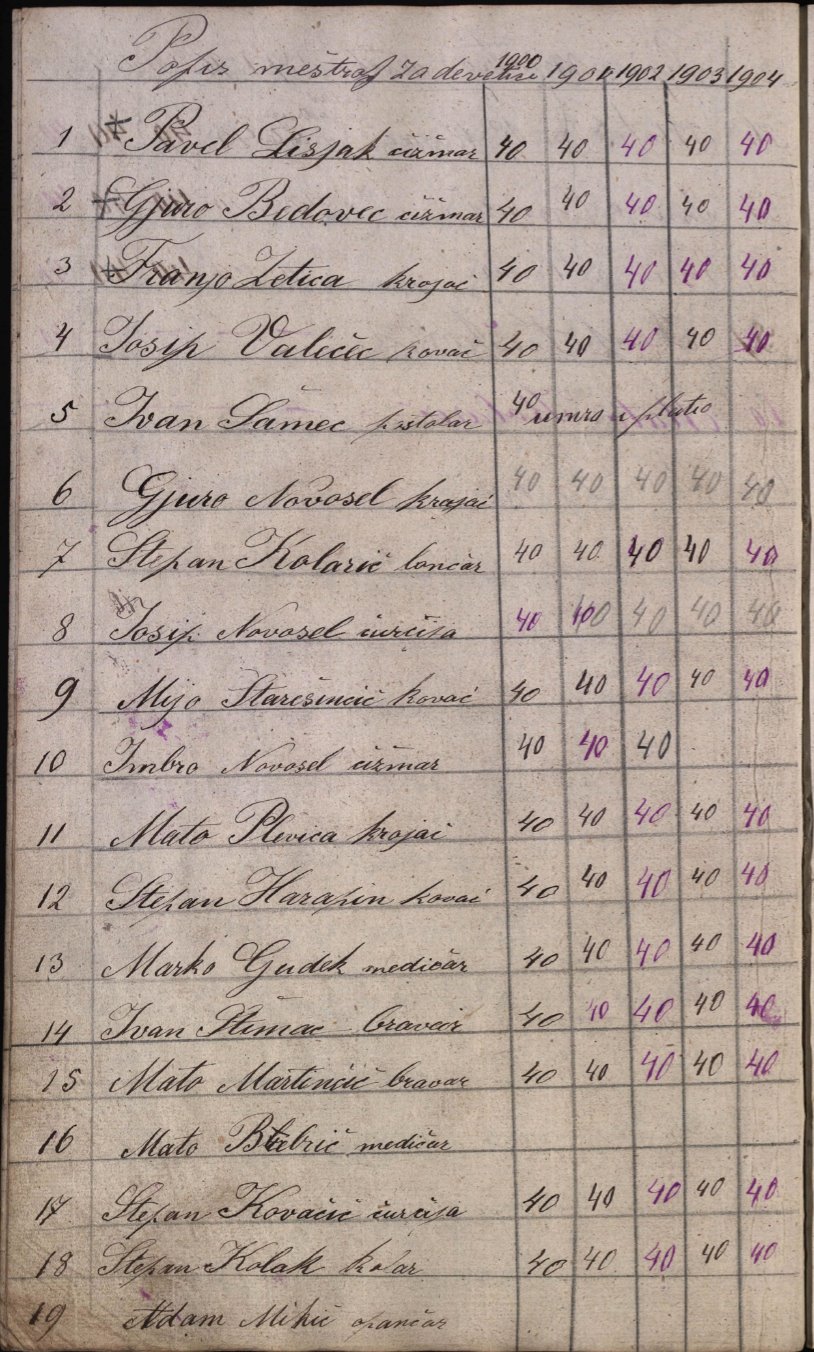 Popis meštrof za devetice 1900 1901 1902 1903 1904
1 Pavel Lisjak čižmar 40 40 40 40 40
2 Gjuro Bedovec čižmar 40 40 40 40 40
3 Franjo Zetica krojač 40 40 40 40 40
4 Josip Valečec kovač 40 40 40 40 40
5 Ivan Samec stolar 40 umro i platio
6 Gjuro Novosel krajač 40 40 40 40 40
7 Stepan Kolarić lončar 40 40 40 40 40
8 Josip Novosel ćurćija 40 40 40 40 40
9 Mijo Starešinčić kovač 40 40 40 40 40
10 Imbro Novosel čižmar 40 40 40
11 Mato Plevica krojač 40 40 40 40 40
12 Stepan Harapin kovač 40 40 40 40 40
13 Marko Gudek medičar 40 40 40 40 40
14 Ivan Štimac bravar 40 40 40 40 40
15 Mato Martinčić bravar 40 40 40 40 40
16 Mato medičar
17 Stepan Kovačić ćurćija 40 40 40 40 40
18 Stepan Kolak kolar 40 40 40 40 40
19 Adam Mikić opančar